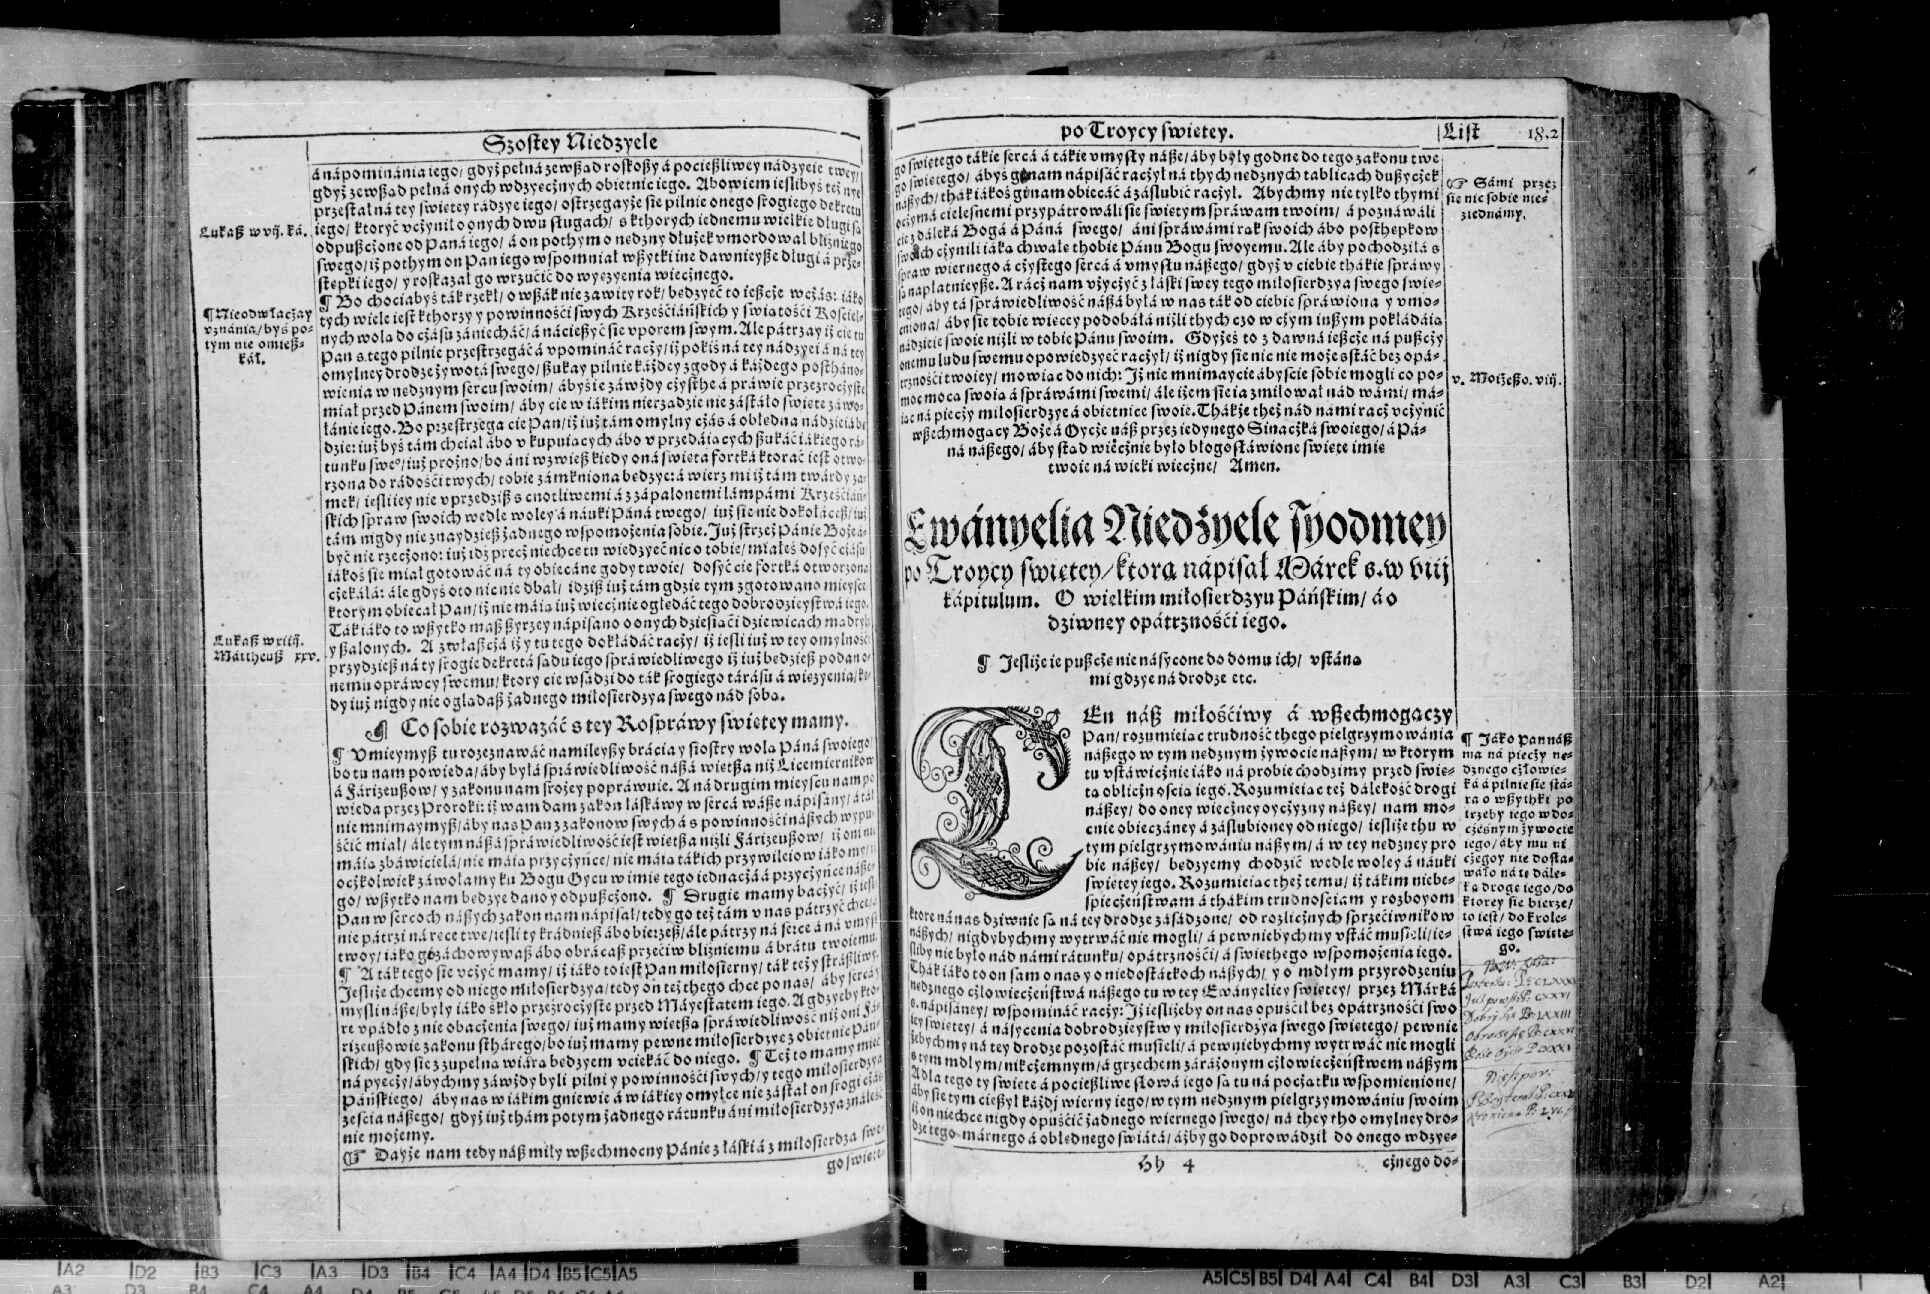 Szostey Niedzyele
á nápominánia iego/ gdyż pełná zewßąd roskoßy á pocießliwey nádzyeie twey/
gdyż zewßąd pełná onych wdzyęcżnych obietnic iego. Abowiem ieslibyś też nye
przestał ná tey swiętey rádzye iego/ ostrzegayże się pilnie onego srogiego dekretu
iego/ ktoryć vcżynił o onych dwu sługach/ s kthorych iednemu wielkie długi są
odpußcżone od Páná iego/ á on pothym o nędzny dłużek vmordował bliźniego
swego/ iż pothym on Pan iego wspomniał wßytki ine dawnieyße długi á prze-
stępki iego/ y roskazał go wrzućić do więzyenia wiecżnego.
¶ Bo chociabyś ták rzekł/ o wßák nie záwity rok/ będzyeć to ießcże wcżás: iáko
tych wiele iest kthorzy y powinnośći swych Krześćiáńskich y swiątośći Kościel-
nych wolą do cżásu zániecháć/ á náćießyć się vporem swym. Ale pátrzay iż cię tu
Pan s. tego pilnie przestrzegáć á vpomináć racży/ iż pokiś ná tey nádzyei á ná tey
omylney drodze żywotá swego/ ßukay pilnie káżdey zgody á káżdego posthano-
wienia w nędznym sercu swoim/ ábyś ie záwżdy cżysthe á práwie przezrocżyste
miał przed Pánem swoim/ áby cię w iákim nierządzie nie zástáło swięte záwo-
łánie iego. Bo przestrzega cię Pan/ iż iuż tám omylny cżás á obłędna nádzieiá bę-
dzie: iuż byś tám chciał ábo v kupuiących ábo v przedáiących ßukáć iákiego rá-
tunku swe°/ iuż prożno/ bo áni wzwieß kiedy oná swięta fortká ktorać iest otwo-
rzona do rádośći twych/ tobie zámkniona będzye: á wierz mi iż tám twárdy zá-
mek/ iesli iey nie vprzedziß s cnotliwemi á z zápalonemi lámpámi Krześćiáń-
skich spraw swoich wedle woley á náuki Páná twego/ iuż się nie dokołáceß/ iuż
tám nigdy nie znaydzieß żadnego wspomożenia sobie. Iuż strzeż Pánie Boże á-
być nie rzecżono: iuż idź precż niechcę tu wiedzyeć nic o tobie/ miałeś dosyć cżásu
iákoś się miał gotowáć ná ty obiecáne gody twoie/ dosyć cię fortká otworzona
cżekáłá: ále gdyś o to nic nie dbał/ idziß iuż tám gdzie tym zgotowano mieysce
ktorym obiecał Pan/ iż nie máią iuż wiecżnie oględáć tego dobrodzieystwá iego.
Ták iáko to wßytko maß ßyrzey nápisano o onych dziesiąci dziewicach mądrych
y ßalonych. A zwłaßcżá iż y tu tego dokłádáć racży/ iż iesli iuż w tey omylnośći
przydzieß ná ty srogie dekretá sądu iego spráwiedliwego iż iuż będzieß podan o-
nemu opráwcy swemu/ ktory cię wsádzi do ták srogiego tárásu á więzyenia/ kę-
dy iuż nigdy nie oglądaß żadnego miłosierdzya swego nád sobą.
¶ Co sobie rozważáć s tey Rospráwy swiętey mamy.
¶ Vmieymyß tu rozeznawáć namileyßy bráćia y siostry wolą Páná swoiego/
bo tu nam powieda/ áby byłá spráwiedliwość náßá więtßa niż Licemiernikow
á Fárizeußow/ y zakonu nam srożey popráwuie. A ná drugim mieyscu nam po
wieda przez Proroki: iż wam dam zakon łáskáwy w sercá wáße nápisány/ á ták
nie mnimaymyß/ áby nas Pan z zakonow swych á s powinnośći náßych wypu-
śćić miał/ ále tym náßá spráwiedliwość iest więtßa niżli Fárizeußow/ iż oni nie
máią zbáwicielá/ nie máią przycżyńce/ nie máią tákich przywileiow iáko my/ iż
ocżkolwiek záwołamy ku Bogu Oycu w imię tego iednácżá á przycżyńce náße-
go/ wßytko nam będzye dano y odpußcżono. ¶ Drugie mamy bacżyć/ iż iesli
Pan w sercoch náßych zakon nam nápisał/ tedy go też tám v nas pátrzyć chce/
nie pátrzi ná ręce twe/ iesli ty krádnieß ábo bierzeß/ ále pátrzy ná serce á ná vmysł
twoy/ iáko go záchowywaß ábo obrácaß przećiw bliźniemu á brátu twoiemu.
¶ A ták tego się vcżyć mamy/ iż iáko to iest Pan miłosierny/ ták też y stráßliwy.
Iesliże chcemy od niego miłosierdzya/ tedy on też thego chce po nas/ áby sercá y
mysli náße/ były iáko skło przezrocżyste przed Máyestatem iego. A gdzyeby kto-
re vpádło z nieobacżenia swego/ iuż mamy więtßa spráwiedliwość niż oni Fá-
rizeußowie zakonu sthárego/ bo iuż mamy pewne miłosierdzye z obietnic Páń-
skich/ gdy się z zupełną wiárą będzyem vciekáć do niego. ¶ Też to mamy mieć
ná pyecży/ ábychmy záwżdy byli pilni y powinnośći swych/ y tego miłosierdzya
Páńskiego/ áby nas w iákim gniewie á w iákiey omyłce nie zástał on srogi cżás
ześcia náßego/ gdyż iuż thám potym żadnego rátunku áni miłosierdzya ználeść
nie możemy.
☞ Dayże nam tedy náß miły wßechmocny Pánie z łáski á z miłosierdza swe-
go swięte-
Lukaß w vij. ká.
¶ Nieodwłacżay
vznánia/ byś po-
tym nie omieß-
kał.
Lukaß w xiiij.
Máttheuß xxv.
po Troycy swiętey.
List 182
go swiętego tákie sercá á tákie vmysły náße/ áby były godne do tego zakonu twe
go swiętego/ ábyś gi nam nápisáć racżył ná thych nędznych tablicach dußycżek
náßych/ thák iákoś gi nam obiecáć á záślubić racżył. Abychmy nie tylko thymi
ocżymá cielesnemi przypátrowáli się swiętym spráwam twoim/ á poznawáli
cię z dáleká Bogá á Páná swego/ áni spráwámi rąk swoich ábo posthępkow
swoich cżynili iáką chwałę thobie Pánu Bogu swoyemu. Ale áby pochodziłá s
spraw wiernego á cżystego sercá á vmysłu náßego/ gdyż v ciebie thákie spráwy
są napłatnieyße. A rácż nam vżycżyć z łáski swey tego miłosierdzya swego swię-
tego/ áby tá spráwiedliwość náßá byłá w nas ták od ciebie spráwiona y vmo-
cniona/ áby się tobie więcey podobáłá niżli thych czo w cżym inßym pokłádáią
nádzieię swoię niżli w tobie Pánu swoim. Gdyżeś to z dawná ießcże ná pußcży
onemu ludu swemu opowiedzyeć racżył/ iż nigdy się nic nie może sstáć bez opá-
trznośći twoiey/ mowiąc do nich: Iż nie mnimaycie ábyście sobie mogli co po-
moc mocą swoią á spráwámi swemi/ ále iżem się ia zmiłował nád wámi/ má-
iąc ná piecży miłosierdzye á obietnice swoie. Thákże theż nád námi racż vcżynić
wßechmogący Boże á Oycże náß przez iedynego Sinacżká swoiego/ á Pá-
ná náßego/ áby stąd wiecżnie było błogosłáwione swięte imię
twoie ná wieki wiecżne/ Amen.
Ewányelia Niedźyele syodmey
po Troycy swiętey/ ktorą nápisał Márek s. w viij
kápitulum. O wielkim miłosierdzyu Páńskim/ á o
dziwney opátrznośći iego.
¶ Iesliże ie pußcżę nie násycone do domu ich/ vstáną
mi gdzye ná drodze etc.
TEn náß miłośćiwy á wßechmogączy
Pan/ rozumieiąc trudność thego pielgrzymowánia
náßego w tym nędznym żywocie náßym/ w ktorym
tu vstáwicżnie iáko ná probie chodzimy przed swię-
tą oblicżnoscią iego. Rozumieiąc też dálekość drogi
náßey/ do oney wiecżney oycżyzny náßey/ nam mo-
cnie obieczáney á záslubioney od niego/ iesliże thu w
tym pielgrzymowániu náßym/ á w tey nędzney pro
bie náßey/ będzyemy chodzić wedle woley á náuki
swiętey iego. Rozumieiąc theż temu/ iż tákim niebe-
spiecżeństwam á thákim trudnosciam y rozboyom
ktore ná nas dziwnie są ná tey drodze zásádzone/ od rozlicżnych sprzećiwnikow
náßych/ nigdybychmy wytrwáć nie mogli/ á pewniebychmy vstáć musieli/ ie-
sliby nie było nád námi rátunku/ opátrznośći/ á swięthego wspomożenia iego.
Thák iáko to on sam o nas y o niedostátkoch náßych/ y o mdłym przyrodzeniu
nędznego cżłowiecżeństwá náßego tu w tey Ewányeliey swiętey/ przez Márká
s. nápisáney/ wspomináć racży: Iż iesliżeby on nas opuśćił bez opátrznośći swo
iey swiętey/ á násycenia dobrodzieystw y miłosierdzya swego swiętego/ pewnie
żebychmy ná tey drodze pozostáć musieli/ á pewniebychmy wytrwáć nie mogli
s tym mdłym/ nikcżemnym/ á grzechem záráżonym cżłowiecżeństwem náßym
A dla tego ty swięte á pocießliwe słowá iego są tu ná pocżątku wspomienione/
áby się tym cießył każdy wierny iego/ w tym nędznym pielgrzymowániu swoim
iż on niechce nigdy opuśćić żadnego wiernego swego/ ná they tho omylney dro-
dze tego márnego á obłędnego swiátá/ áżby go doprowádził do onego wdzyę-
Hh 4
cżnego do-
☞ Sámi przez
się nic sobie nie-
ziednamy.
v. Moiżeßo. viij.
¶ Iáko Pan náß
ma ná piecży nę-
dznego cżłowie-
ká á pilnie się stá-
ra o wßythki po
trzeby iego w do-
cżesnym żywocie
iego/ áby mu ni
cżegoy nie dostá-
wáło ná te dále-
ką drogę iego/ do
ktorey się bierze/
to iest/ do krole-
stwá iego swięte-
go.